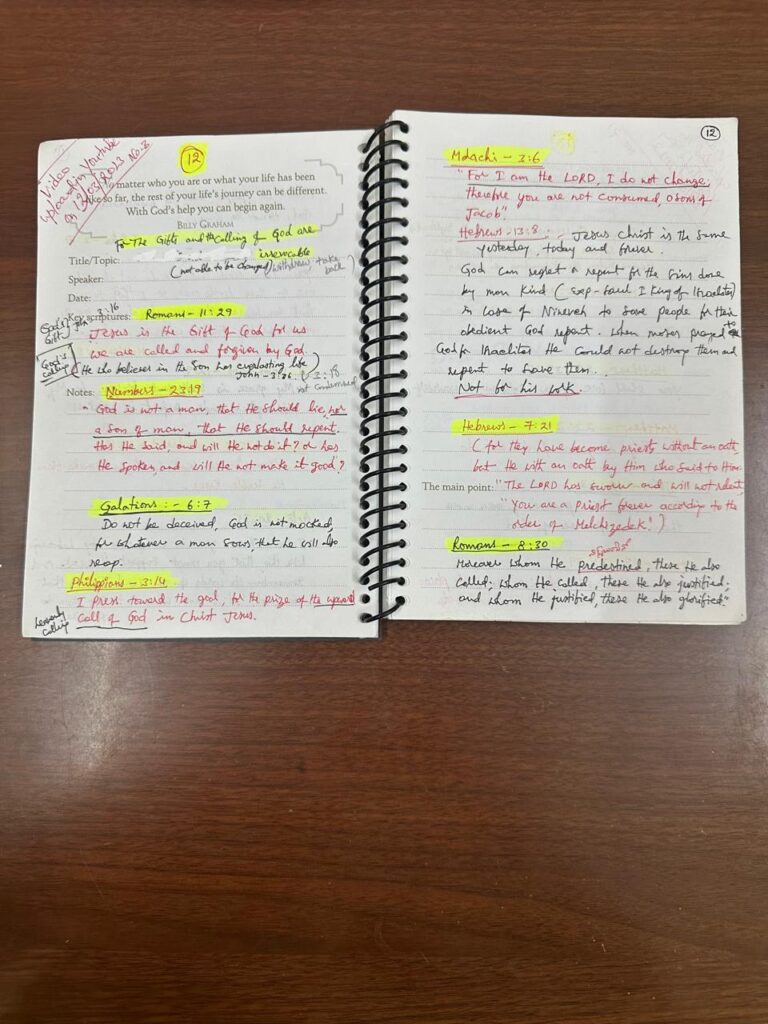 Video
uploaded in Youtube
on 12/03/2023 No:3
12
No matter who you are or what your life has been
like so far, the rest of your life's journey can be different.
With God's help you can begin again.
BILLY GRAHAM
For The Gifts and the Calling of God are
Title/Topic: irrevocable
(not able to be changed) (withdraw, take back)
Speaker:
Date:
God's Gift John 3:16
Key scriptures: Romans - 11:29
Jesus is the Gift of God for us
God's calling
we are called and forgiven by God.
(He who believes in the Son has everlasting life)
John - 3:36 3:18
not condemned
Notes: Numbers - 23:19
"God is not a man, that He should lie, nor
a son of man, that He should repent.
Has He said, and will He not do it? or has
He spoken, and will He not make it good"?
Galations :- 6:7
Do not be deceived, God is not mocked,
for whatever a man sows, that he will also
reap.
Philippians - 3:14
I press toward the goal, for the prize of the upward
Heavenly calling
call of God in Christ Jesus.
12
Malachi - 3:6
"For I am the LORD, I do not change,
therefore you are not consumed, O sons of
Jacob".
Hebrews - 13:8 :- Jesus Christ is the same
yesterday, today and forever.
God can regret a repent for the sins done
by man kind (Exp - Saul I King of Israelites)
in case of Nineveh to save people for their
obedient God repent. When moses prayed to
God for Israelites He could not destroy them and
repent to have them.
Not for his work.
Hebrews - 7:21
(for they have become priests without an oath,
but He with an oath by Him who said to Him
The main point: "The LORD has sworn and will not relent,
"You are a priest forever according to the
order of Melchizedek.")
Romans - 8:30
Moreover whom He predestined, these He also
called; whom He called, these He also justified;
and whom He justified, these He also glorified."